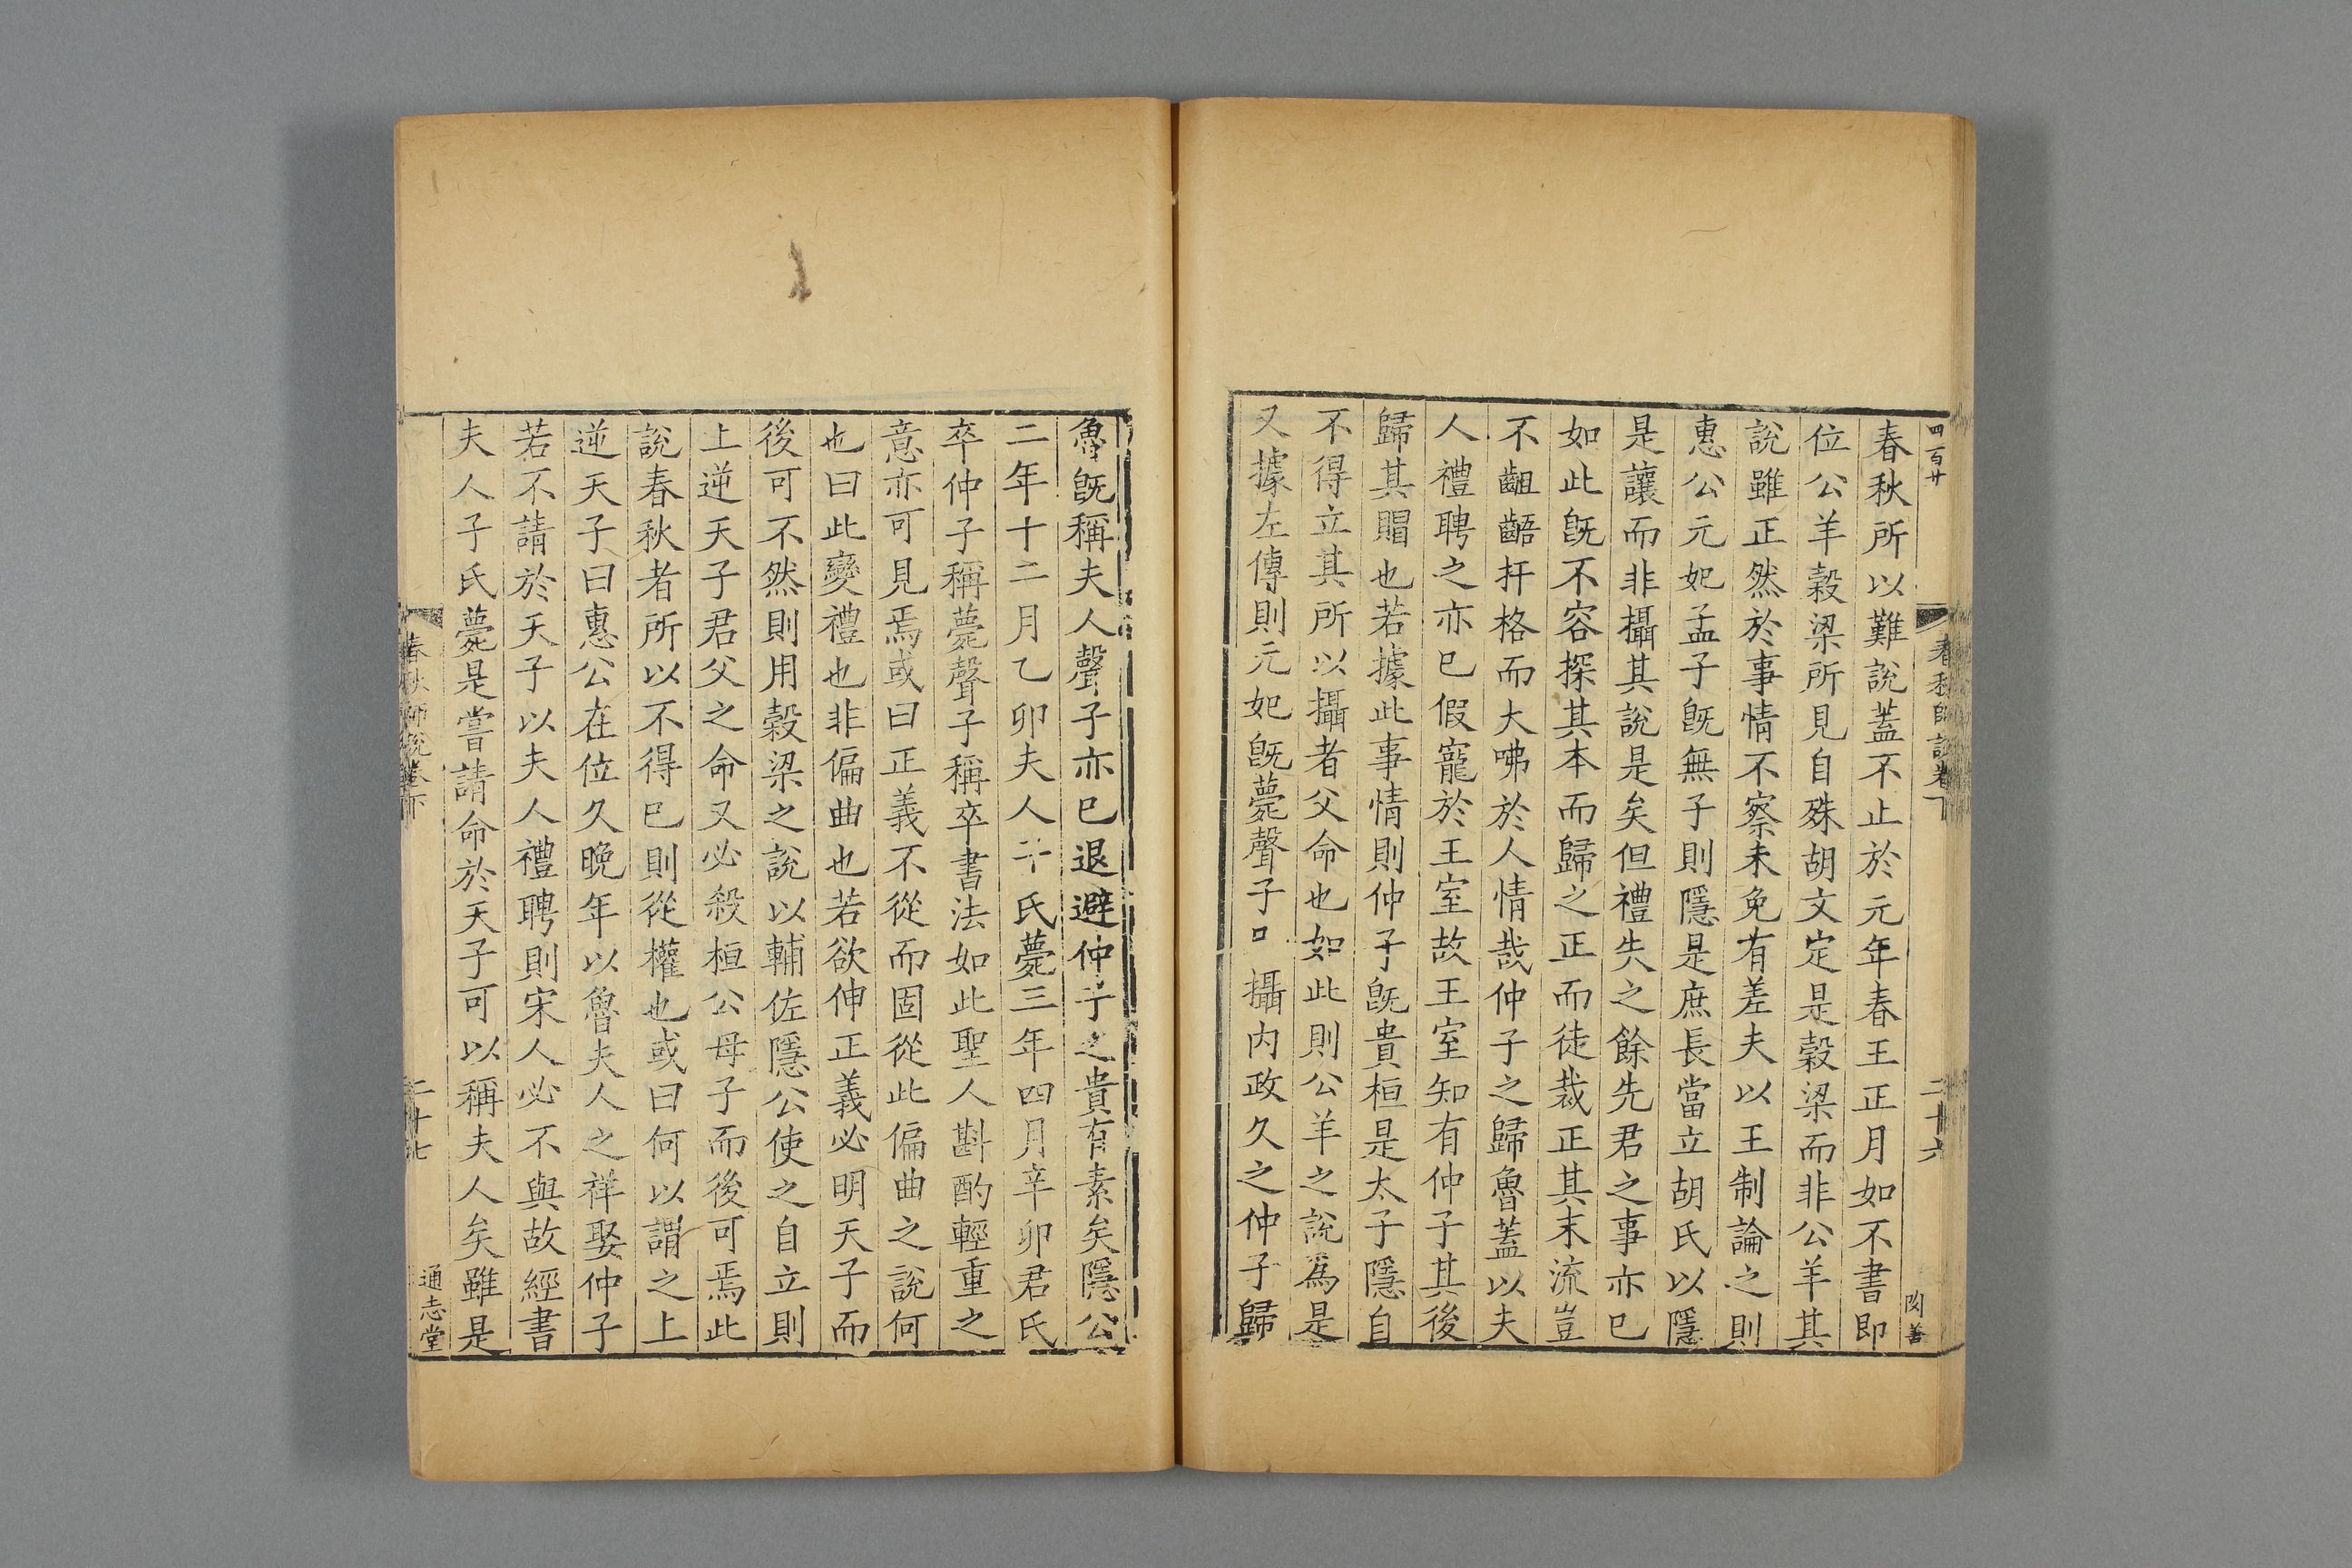 四百廿
春秋師說卷下
二十六
閔善
春秋所以難說蓋不止於元年春王正月如不書即
位公羊穀梁所見自殊胡文定是穀梁而非公羊其
說雖正然於事情不察未免有差夫以王制論之則
惠公元妃孟子旣無子則隱是庶長當立胡氏以隱
是讓而非攝其說是矣但禮失之餘先君之事亦已
如此旣不容探其本而歸之正而徒裁正其末流豈
不齟齬扞格而大咈於人情哉仲子之歸魯蓋以夫
人禮聘之亦已假寵於王室故王室知有仲子其後
歸其賵也若據此事情則仲子旣貴桓是太子隱自
不得立其所以攝者父命也如此則公羊之說爲是
又據左傳則元妃旣薨聲子攝内政久之仲子歸
魯旣稱夫人聲子亦已退避仲子之貴有素矣隱公
二年十二月乙卯夫人氏薨三年四月辛卯君氏
卒仲子稱薨聲子稱卒書法如此聖人斟酌輕重之
意亦可見焉或曰正義不從而固從此偏曲之說何
也曰此變禮也非偏曲也若欲伸正義必明天子而
後可不然則用穀梁之說以輔佐隱公使之自立則
上逆天子君父之命又必殺桓公母子而後可焉此
說春秋者所以不得已則從權也或曰何以謂之上
逆天子曰惠公在位久晚年以魯夫人之祥娶仲子
若不請於天子以夫人禮聘則宋人必不與故經書
夫人子氏薨是嘗請命於天子可以稱夫人矣雖是
春秋師說卷下
二十七
通志堂